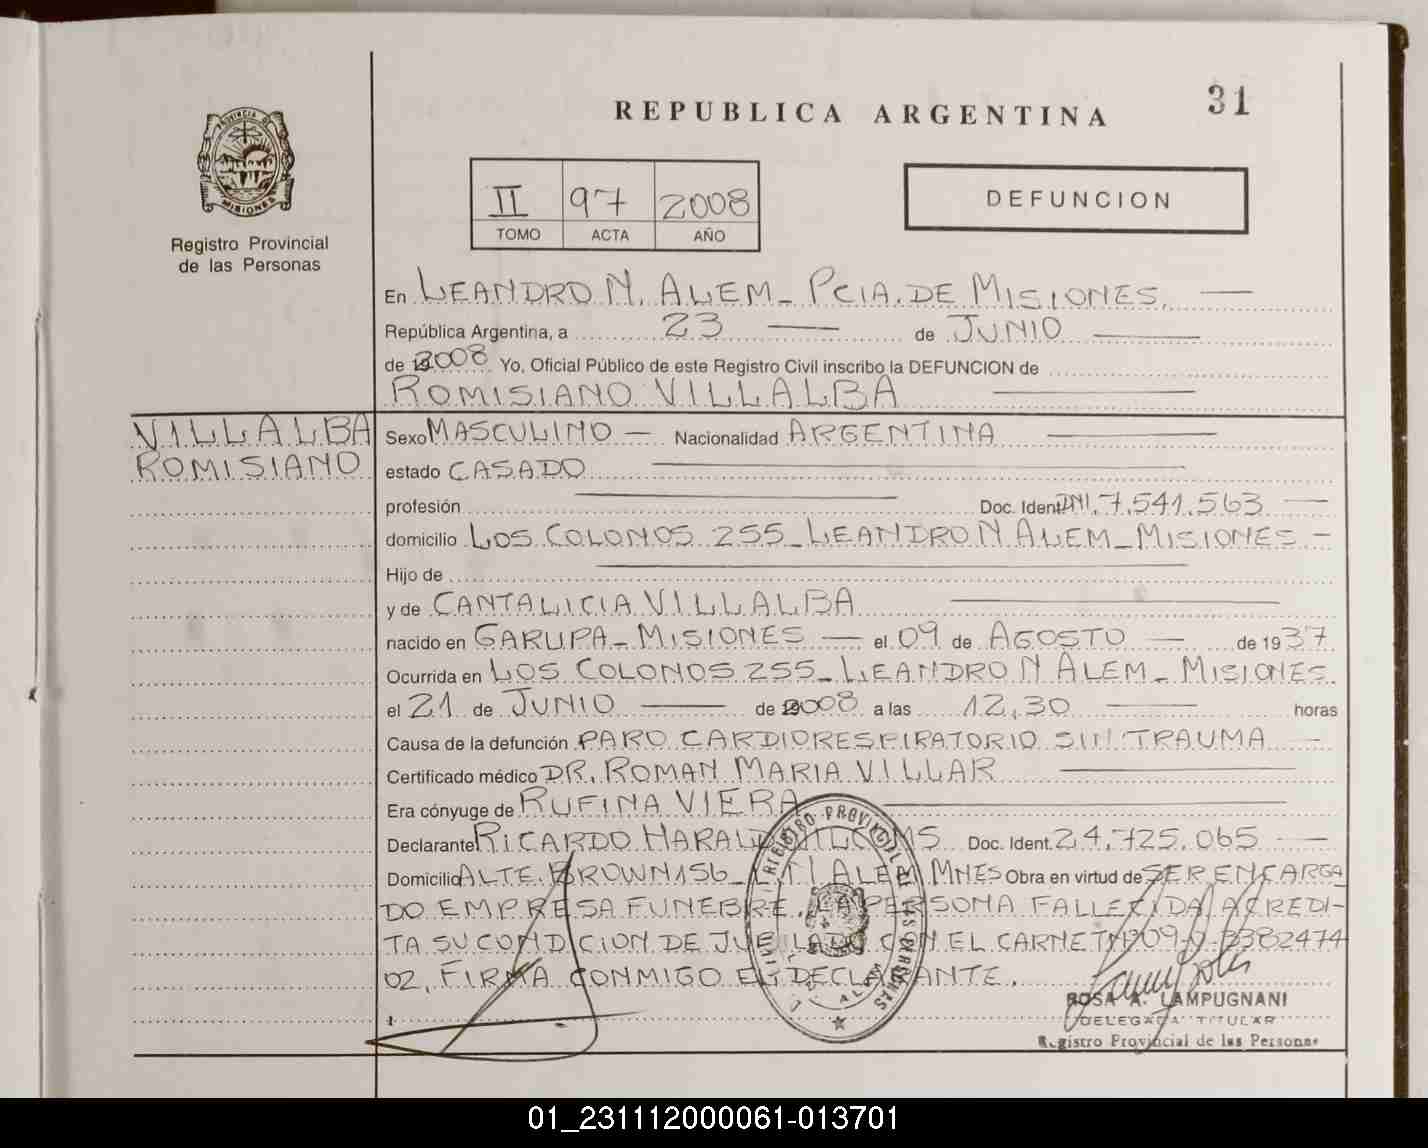 REPUBLICA ARGENTINA
31
PROVINCIA DE
MISIONES
Registro Provincial
de las Personas
II 97 2008
TOMO ACTA AÑO
DEFUNCION
En LEANDRO N. ALEM - PCIA. DE MISIONES.
República Argentina, a 23 de JUNIO
de 2008 Yo, Oficial Público de este Registro Civil inscribo la DEFUNCION de
ROMISIANO VILLALBA
VILLALBA
ROMISIANO
Sexo MASCULINO - Nacionalidad ARGENTINA
estado CASADO
profesión Doc. Ident. DNI. 7.541.563
domicilio LOS COLONOS 255 - LEANDRO N ALEM - MISIONES -
Hijo de
y de CANTALICIA VILLALBA
nacido en GARUPA - MISIONES - el 09 de AGOSTO - de 1937
Ocurrida en LOS COLONOS 255 - LEANDRO N ALEM - MISIONES.
el 21 de JUNIO de 2008 a las 12,30 horas
Causa de la defunción PARO CARDIORESPIRATORIO SIN TRAUMA
Certificado médico DR. ROMAN MARIA VILLAR
Era cónyuge de RUFINA VIERA
Declarante RICARDO Doc. Ident. 24.725.065
Domicilio ALTE. BROWN 156 - ALEM MNES Obra en virtud de SER ENCARGA
DO EMPRESA FUNEBRE. LA PERSONA FALLECIDA, ACREDI-
TA SU CONDICION DE JUBILADO CON EL CARNET Nº 09-0-3382474
02, FIRMA CONMIGO EL DECLARANTE.
REGISTRO PROVINCIAL DE LAS PERSONAS
ALEM
ROSA A. LAMPUGNANI
DELEGADA TITULAR
Registro Provincial de las Personas
01_231112000061-013701